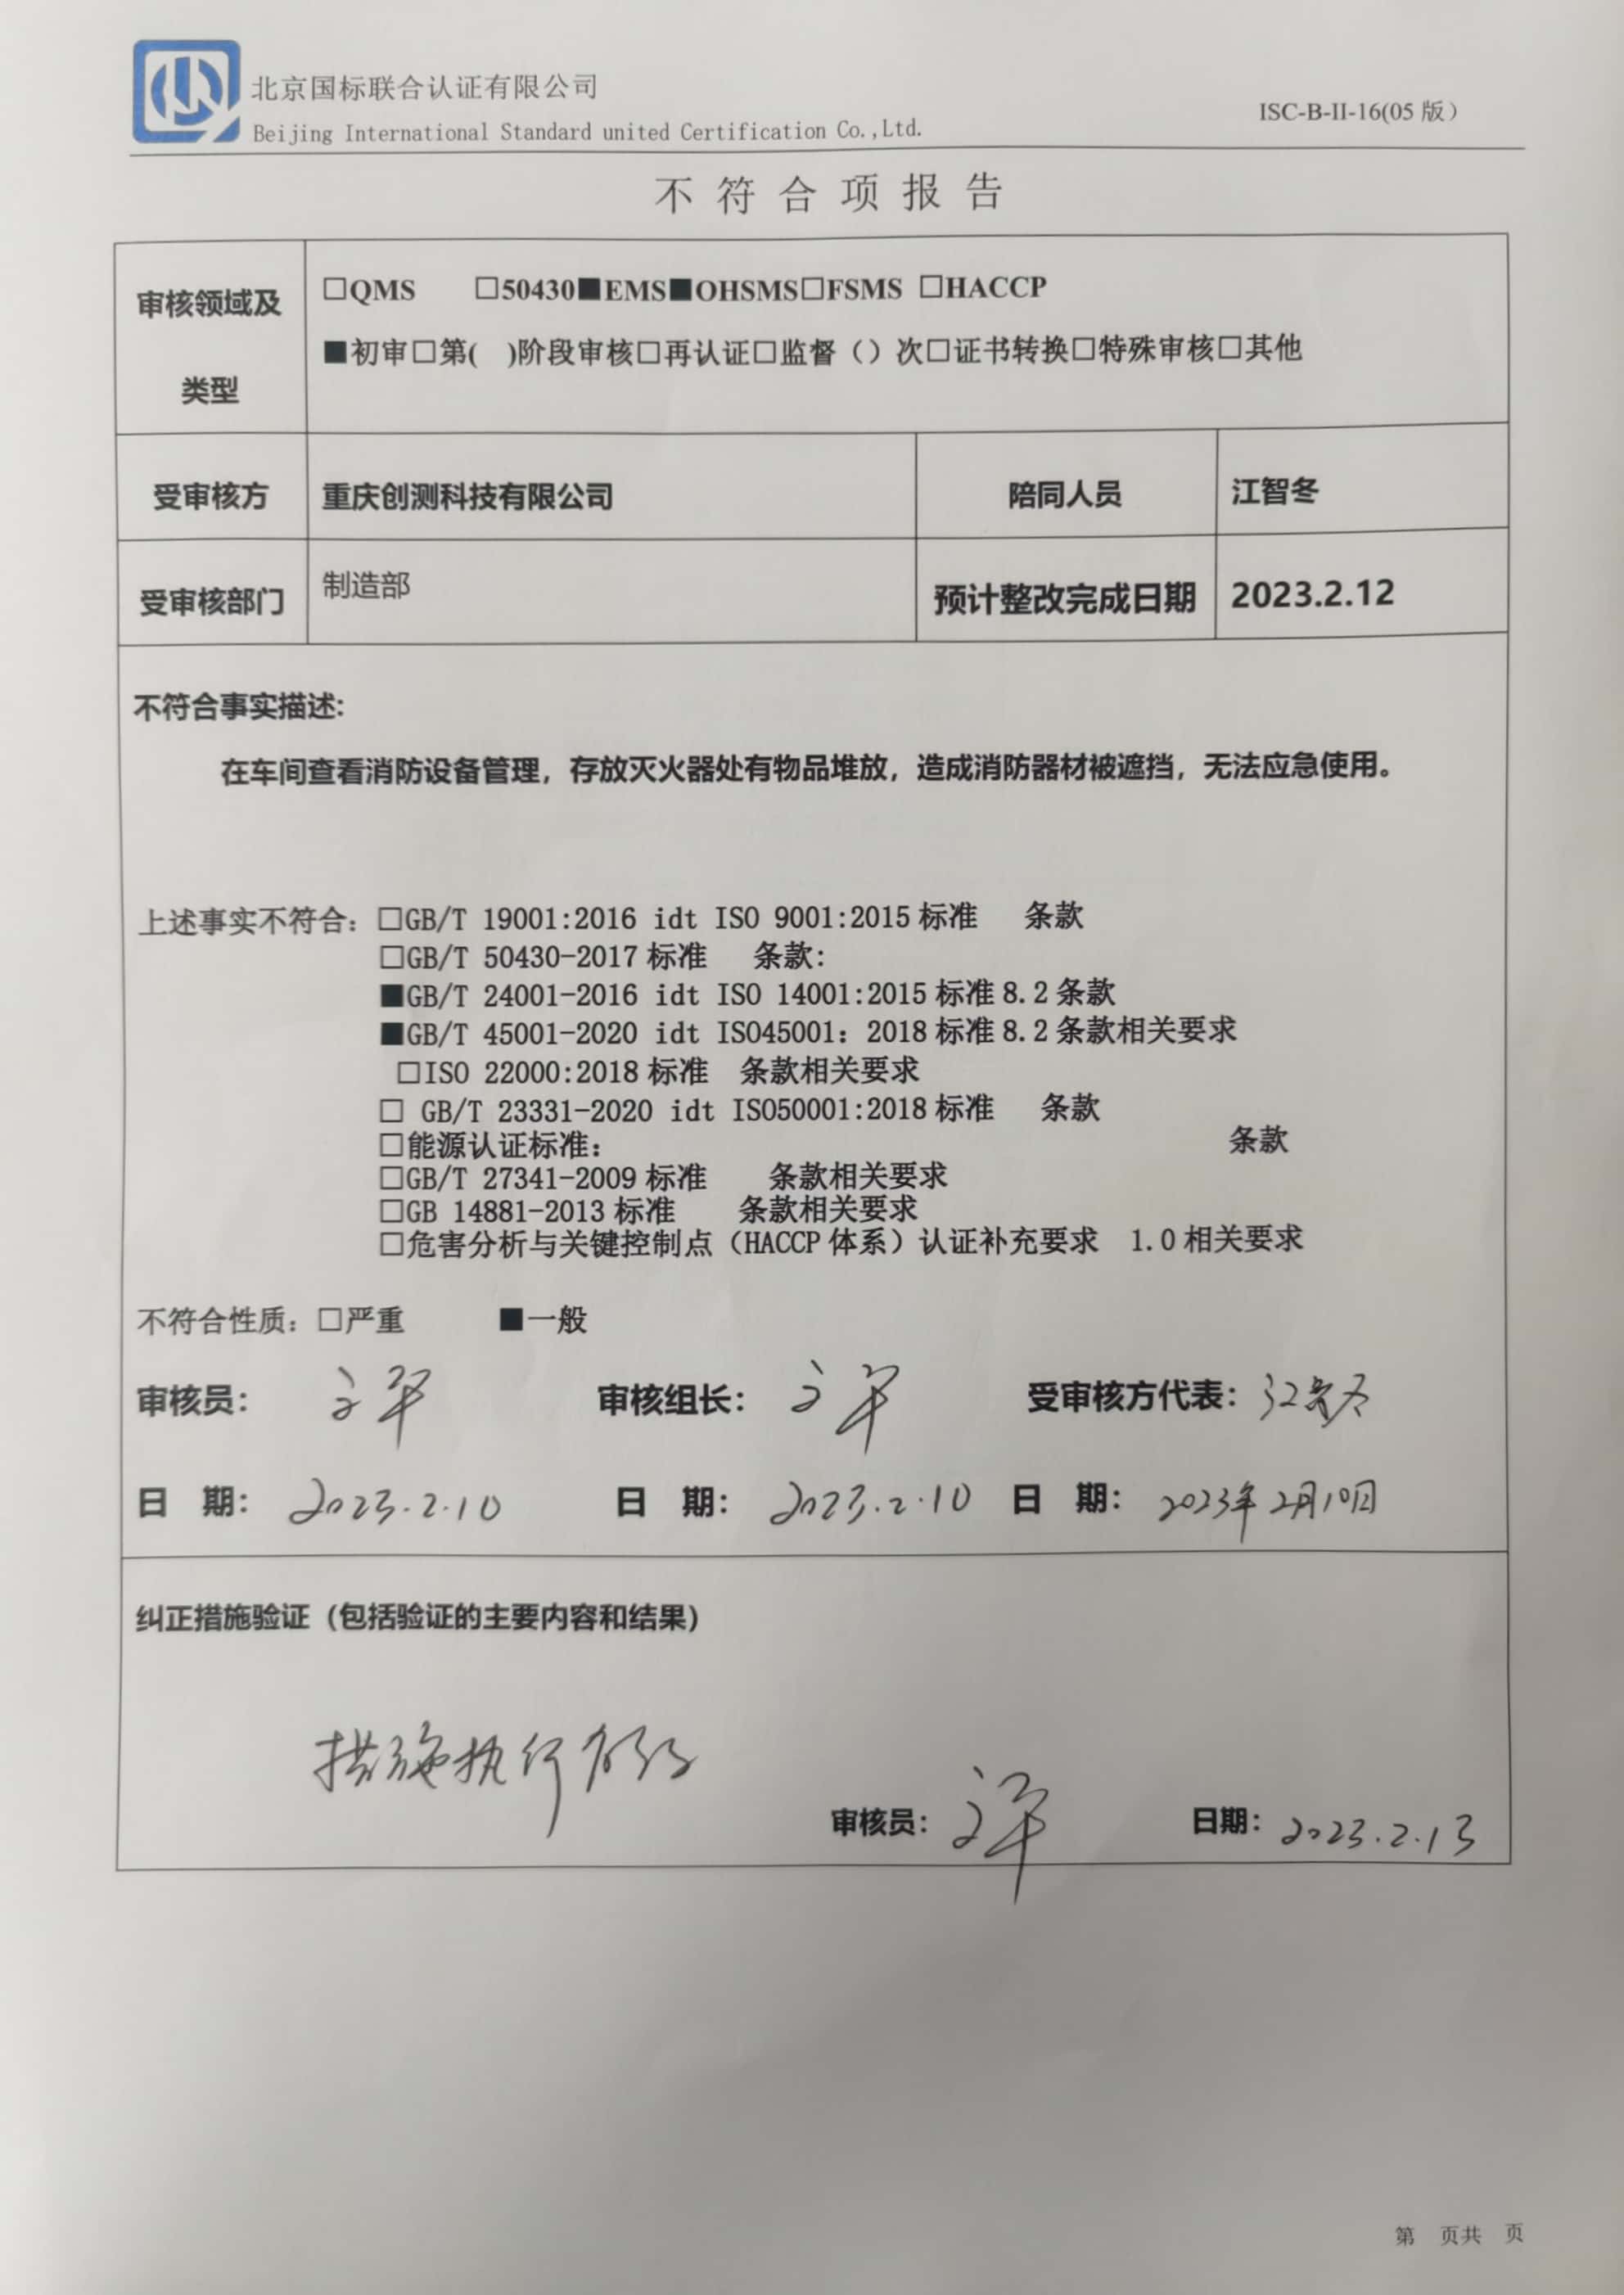 北京国标联合认证有限公司
Beijing International Standard united Certification Co.,Ltd.
ISC-B-II-16(05 版)
不符合项报告
审核领域及类型
□QMS □50430■EMS■OHSMS□FSMS □HACCP
■初审□第( )阶段审核□再认证□监督（）次□证书转换□特殊审核□其他
受审核方 重庆创测科技有限公司 陪同人员 江智冬
受审核部门 制造部 预计整改完成日期 2023.2.12
不符合事实描述:
在车间查看消防设备管理，存放灭火器处有物品堆放，造成消防器材被遮挡，无法应急使用。
上述事实不符合：□GB/T 19001:2016 idt ISO 9001:2015 标准 条款
□GB/T 50430-2017 标准 条款:
■GB/T 24001-2016 idt ISO 14001:2015 标准 8.2 条款
■GB/T 45001-2020 idt ISO45001：2018 标准 8.2 条款相关要求
□ISO 22000:2018 标准 条款相关要求
□ GB/T 23331-2020 idt ISO50001:2018 标准 条款
□能源认证标准： 条款
□GB/T 27341-2009 标准 条款相关要求
□GB 14881-2013 标准 条款相关要求
□危害分析与关键控制点（HACCP 体系）认证补充要求 1.0 相关要求
不符合性质：□严重 ■一般
审核员： 审核组长： 受审核方代表：江智冬
日 期：2023.2.10 日 期：2023.2.10 日 期：2023年2月10日
纠正措施验证（包括验证的主要内容和结果）
措施执行有效
审核员： 日期：2023.2.13
第 页共 页